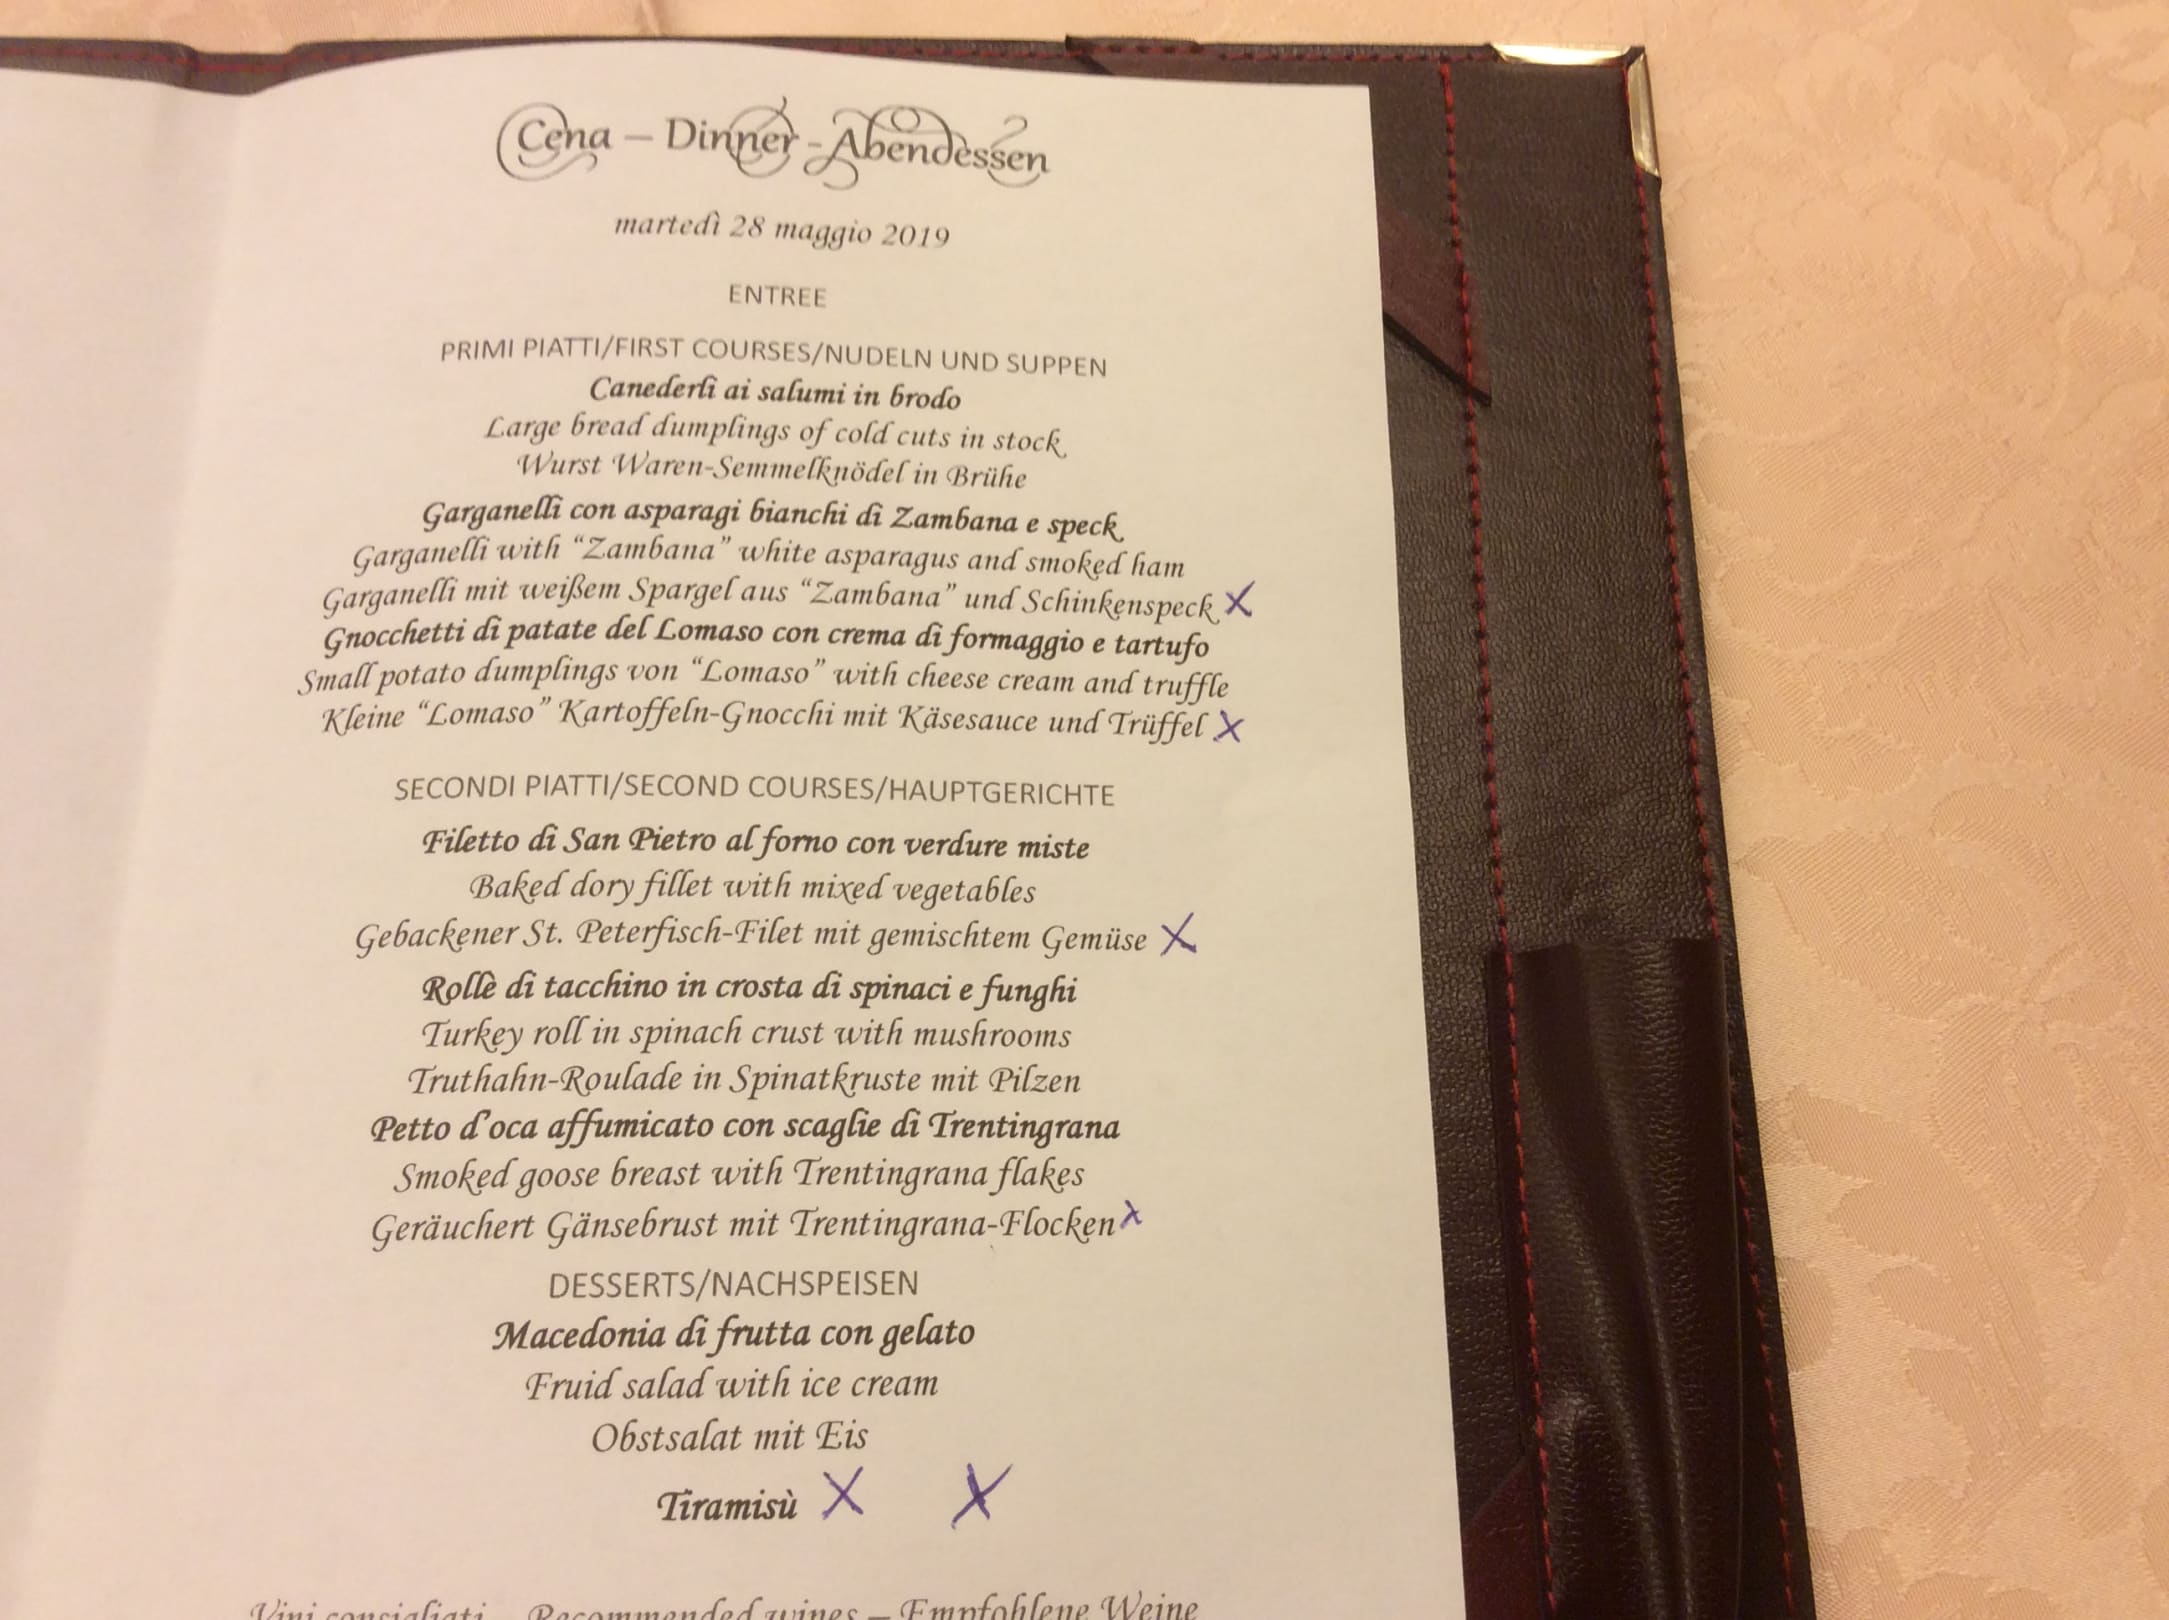 Cena – Dinner - Abendessen
martedì 28 maggio 2019
ENTREE
PRIMI PIATTI/FIRST COURSES/NUDELN UND SUPPEN
Canederli ai salumi in brodo
Large bread dumplings of cold cuts in stock
Wurst Waren-Semmelknödel in Brühe
Garganelli con asparagi bianchi di Zambana e speck
Garganelli with “Zambana” white asparagus and smoked ham
Garganelli mit weißem Spargel aus “Zambana” und Schinkenspeck X
Gnocchetti di patate del Lomaso con crema di formaggio e tartufo
Small potato dumplings von “Lomaso” with cheese cream and truffle
Kleine “Lomaso” Kartoffeln-Gnocchi mit Käsesauce und Trüffel X
SECONDI PIATTI/SECOND COURSES/HAUPTGERICHTE
Filetto di San Pietro al forno con verdure miste
Baked dory fillet with mixed vegetables
Gebackener St. Peterfisch-Filet mit gemischtem Gemüse X
Rollè di tacchino in crosta di spinaci e funghi
Turkey roll in spinach crust with mushrooms
Truthahn-Roulade in Spinatkruste mit Pilzen
Petto d'oca affumicato con scaglie di Trentingrana
Smoked goose breast with Trentingrana flakes
Geräuchert Gänsebrust mit Trentingrana-Flocken X
DESSERTS/NACHSPEISEN
Macedonia di frutta con gelato
Fruid salad with ice cream
Obstsalat mit Eis
Tiramisù X X
Vini consigliati – Recommended wines – Empfohlene Weine